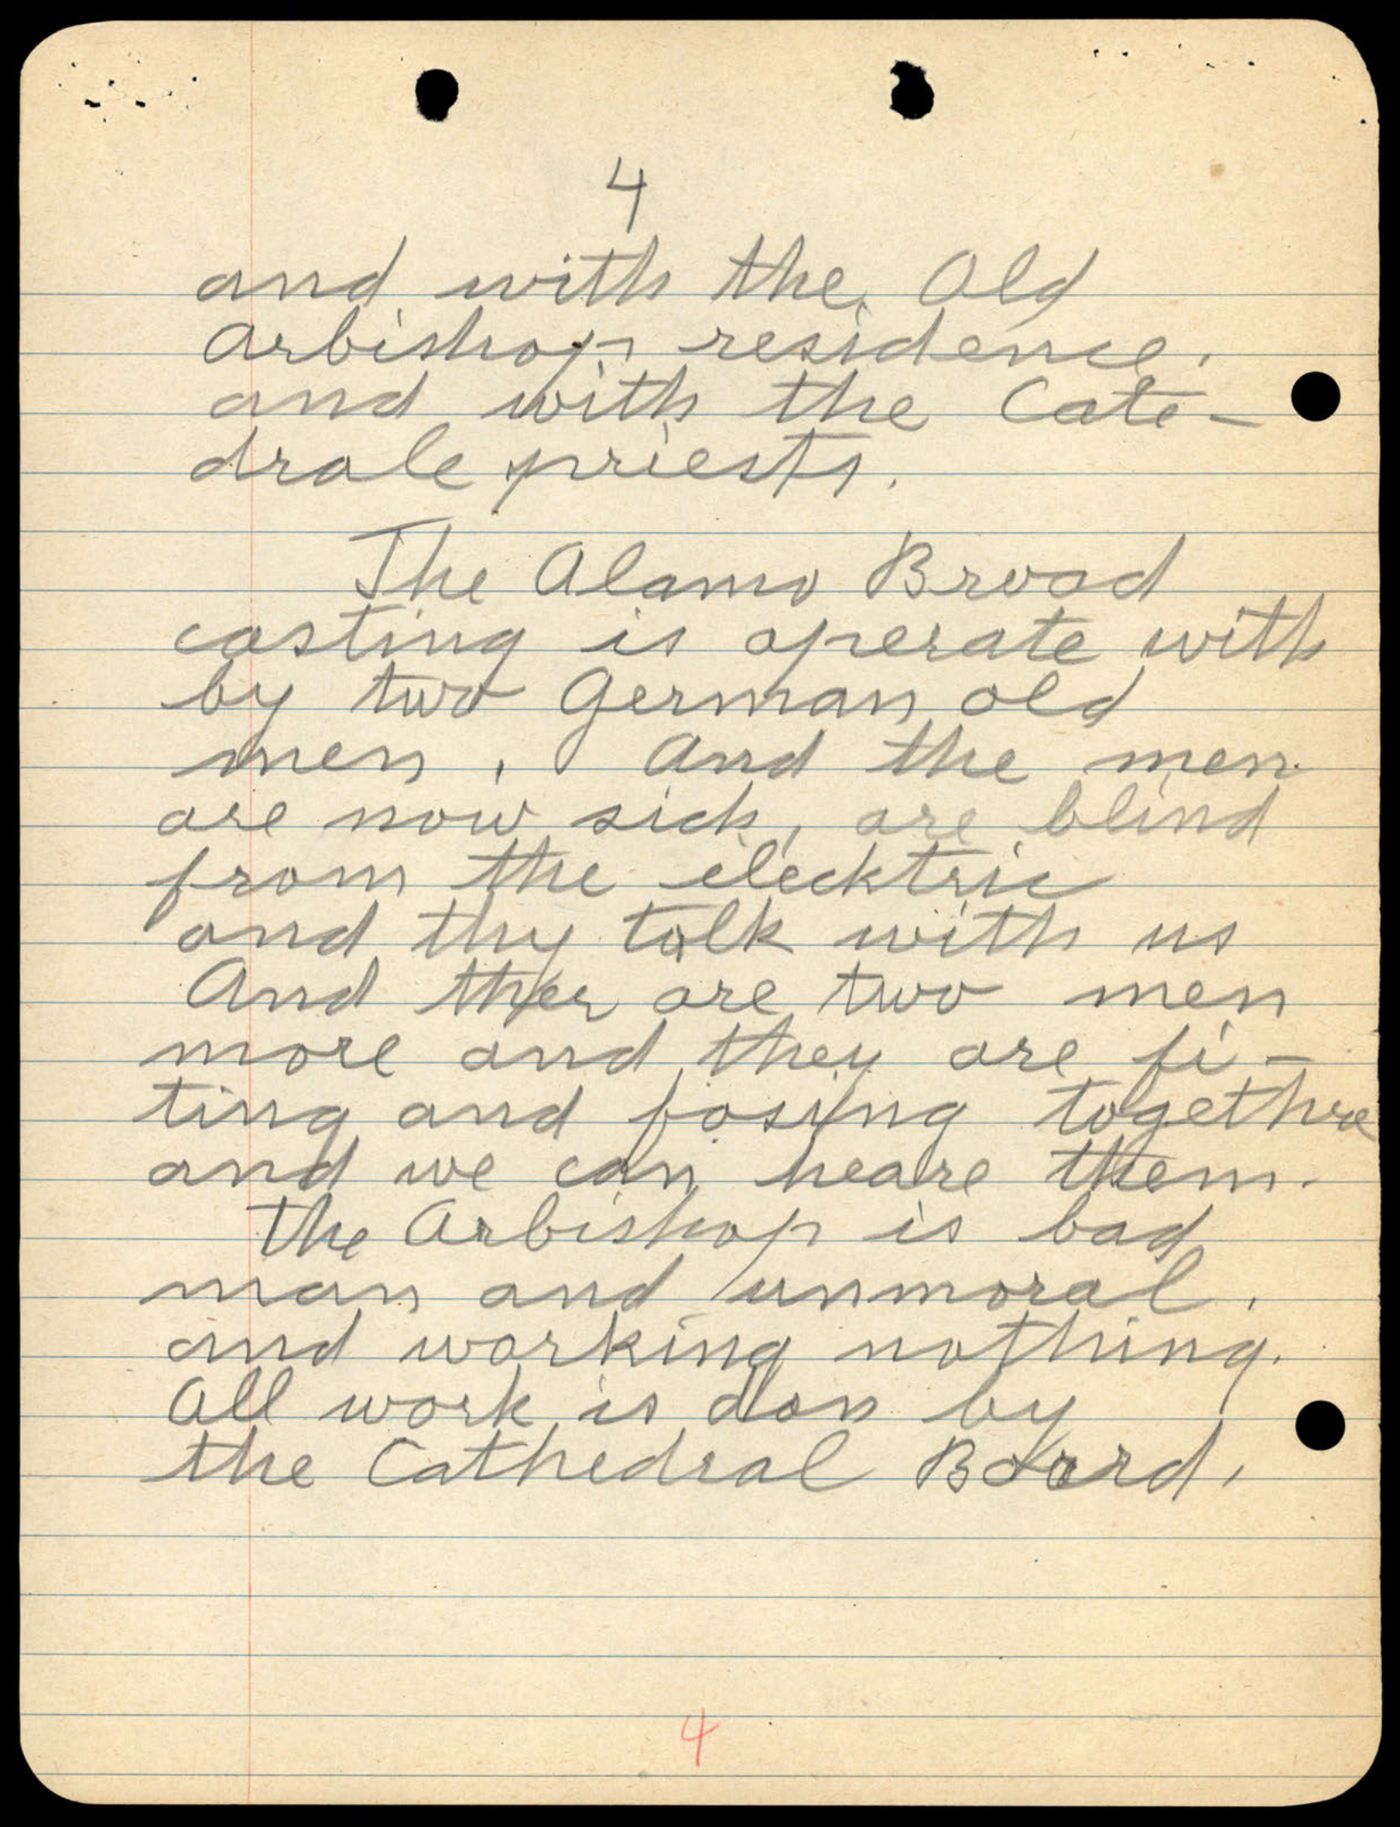 4
and with the Old
Arbishop residence.
and with the Cate-
drale priests.
The Alamo Broad
casting is operate with
by two German old
men. And the men
are now sick, are blind
from the elecktric
and thy talk with us
And ther are two men
more and they are fi-
ting and fosing togethre
and we can heare them.
The Arbishop is bad
man and unmoral.
and working nothing.
All work is don by
the Cathedral Board.
4